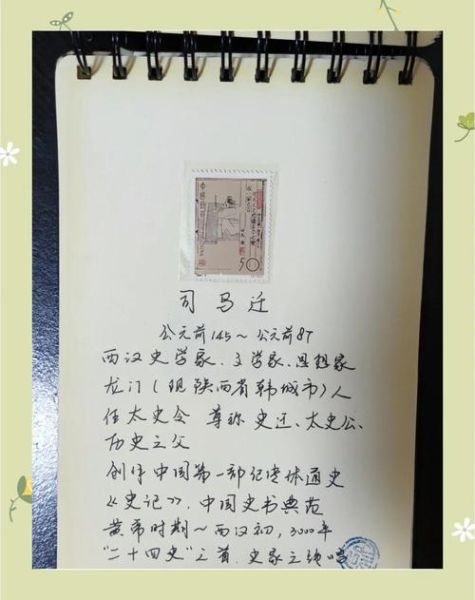 50
司马迁
公元前145～公元前87
西汉史学家、文学家、思想家
龙门（现陕西省韩城市）人
任太史令 尊称 史迁、太史公、
历史之父
创作中国第一部纪传体通史
《史记》，中国史书典范
黄帝时期～西汉初，3000年
"二十四史"之首，史家之绝唱